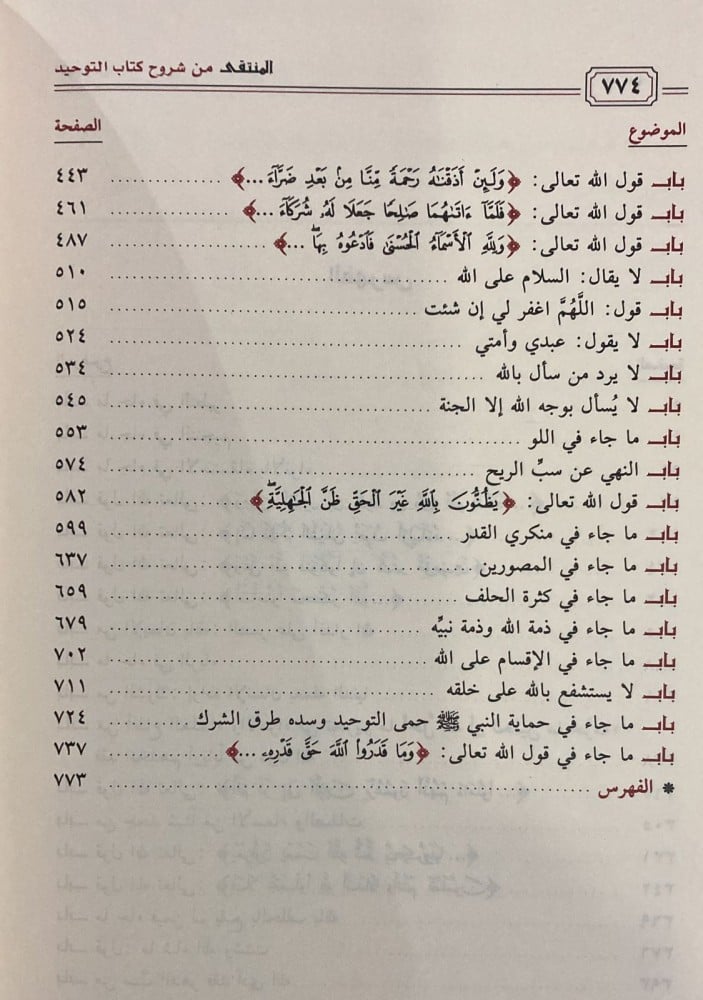 المنتقى من شروح كتاب التوحيد
٧٧٤
الموضوع الصفحة
باب قول الله تعالى: ﴿وَلَئِنْ أَذَقْنَاهُ رَحْمَةً مِّنَّا مِنۢ بَعْدِ ضَرَّآءَ ...﴾ ٤٤٣
باب قول الله تعالى: ﴿فَلَمَّآ ءَاتَىٰهُمَا صَٰلِحًا جَعَلَا لَهُۥ شُرَكَآءَ ...﴾ ٤٦١
باب قول الله تعالى: ﴿وَلِلَّهِ ٱلْأَسْمَآءُ ٱلْحُسْنَىٰ فَٱدْعُوهُ بِهَا ...﴾ ٤٨٧
باب لا يقال: السلام على الله ٥١٠
باب قول: اللَّهُمَّ اغفر لي إن شئت ٥١٥
باب لا يقول: عبدي وأمتي ٥٢٤
باب لا يرد من سأل بالله ٥٣٤
باب لا يُسأل بوجه الله إلا الجنة ٥٤٥
باب ما جاء في اللو ٥٥٣
باب النهي عن سبِّ الريح ٥٧٤
باب قول الله تعالى: ﴿يَظُنُّونَ بِٱللَّهِ غَيْرَ ٱلْحَقِّ ظَنَّ ٱلْجَٰهِلِيَّةِ﴾ ٥٨٢
باب ما جاء في منكري القدر ٥٩٩
باب ما جاء في المصورين ٦٣٧
باب ما جاء في كثرة الحلف ٦٥٩
باب ما جاء في ذمة الله وذمة نبيِّه ٦٧٩
باب ما جاء في الإقسام على الله ٧٠٢
باب لا يستشفع بالله على خلقه ٧١١
باب ما جاء في حماية النبي ﷺ حمى التوحيد وسده طرق الشرك ٧٢٤
باب ما جاء في قول الله تعالى: ﴿وَمَا قَدَرُوا۟ ٱللَّهَ حَقَّ قَدْرِهِۦ ...﴾ ٧٣٧
* الفهرس ٧٧٣